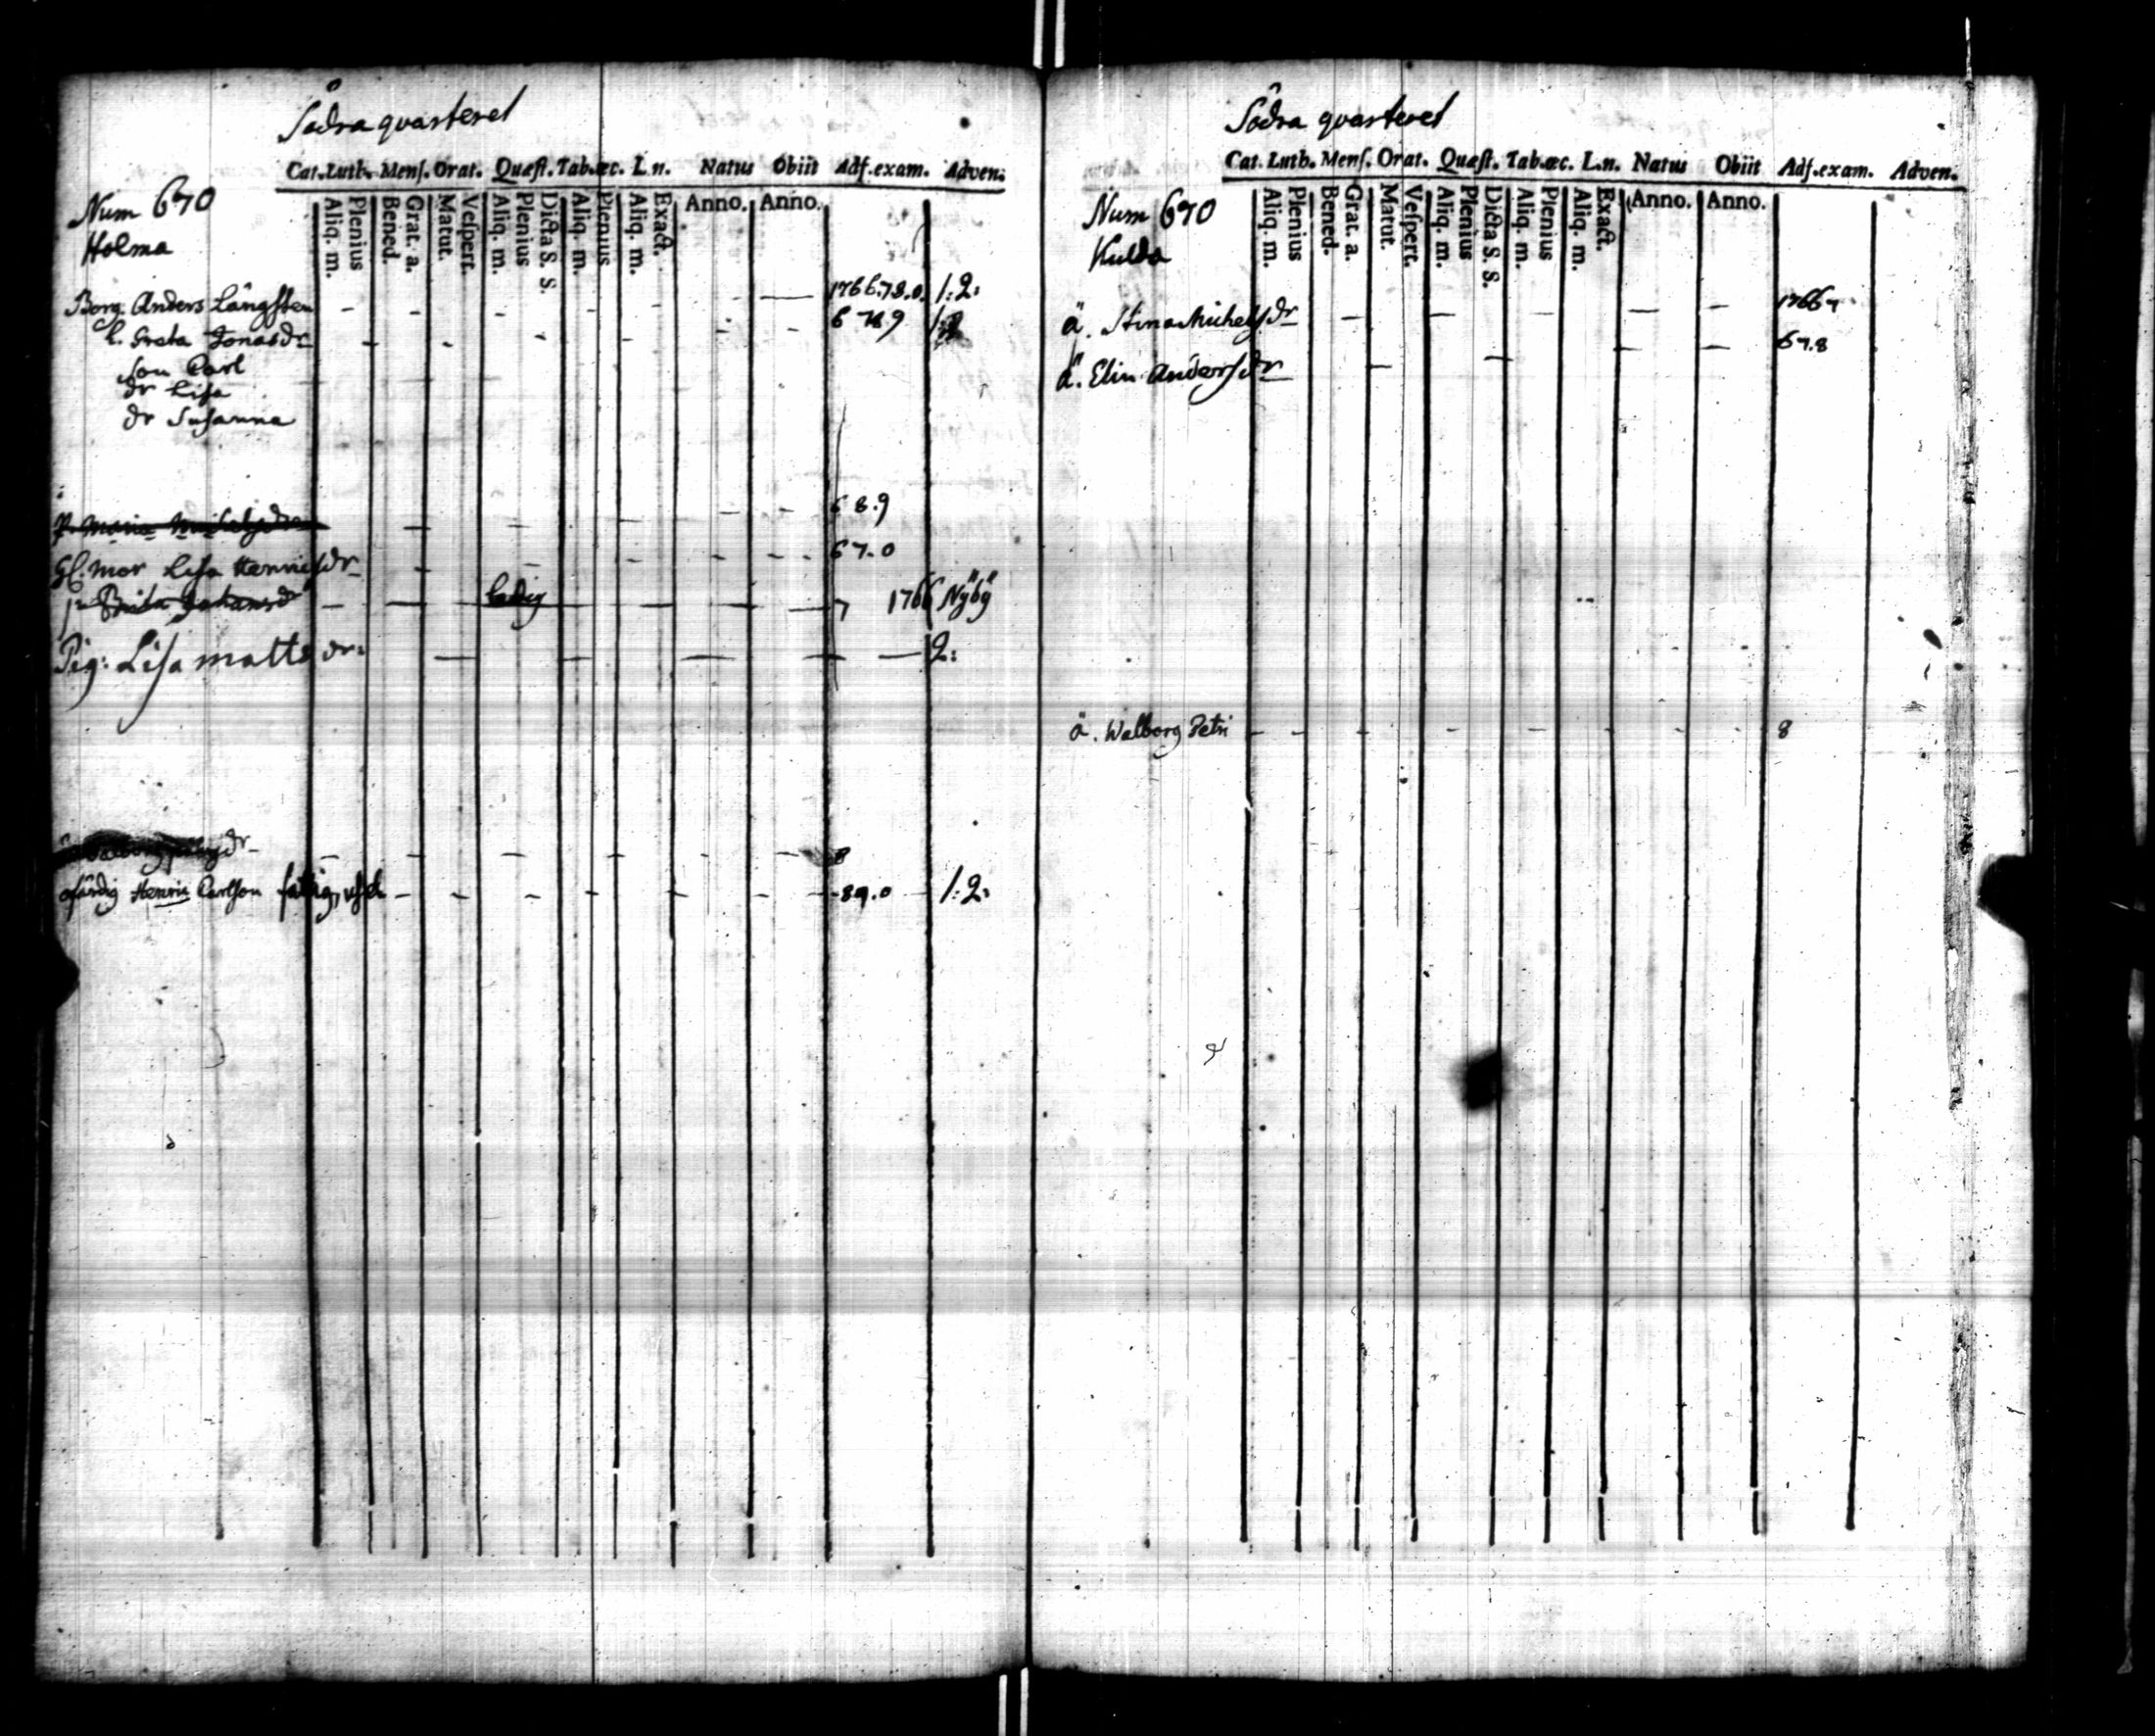 Södra quarteret
Cat. Luth. Mens. Orat. Quæst. Tab. œc. L. n. Natus Obiit Adf. exam. Adven.
Aliq. m. Plenius Bened. Grat. a. Matut. Vespert. Aliq. m. Plenius Dicta S. S. Aliq. m. Plenius Aliq. m. Exact. Anno. Anno.
Num 670
Holma
Borg. Anders Långsten 1766.78.0. 1:2:
h. Greta Jonasdr 6 789
son Carl
dr Lisa
dr Susanna
P. Maria Michelsdr 68.9
Gl. mor Lisa Henricsdr 67.0
Brita Johansdr ledig 7 1766 Nÿbÿ
Pig: Lisa matts dr: 2:
dr 8
ofärdig Henric Carlson fattig, usel 89.0 1:2:
Södra quarteret
Cat. Luth. Mens. Orat. Quæst. Tab. œc. L. n. Natus Obiit Adf. exam. Adven.
Aliq. m. Plenius Bened. Grat. a. Matut. Vespert. Aliq. m. Plenius Dicta S. S. Aliq. m. Plenius Aliq. m. Exact. Anno. Anno.
Num 670
Kulda
ä. Stina Michelsdr 17667
ä. Elin Andersdr 67.8
ä. Walborg Petri 8